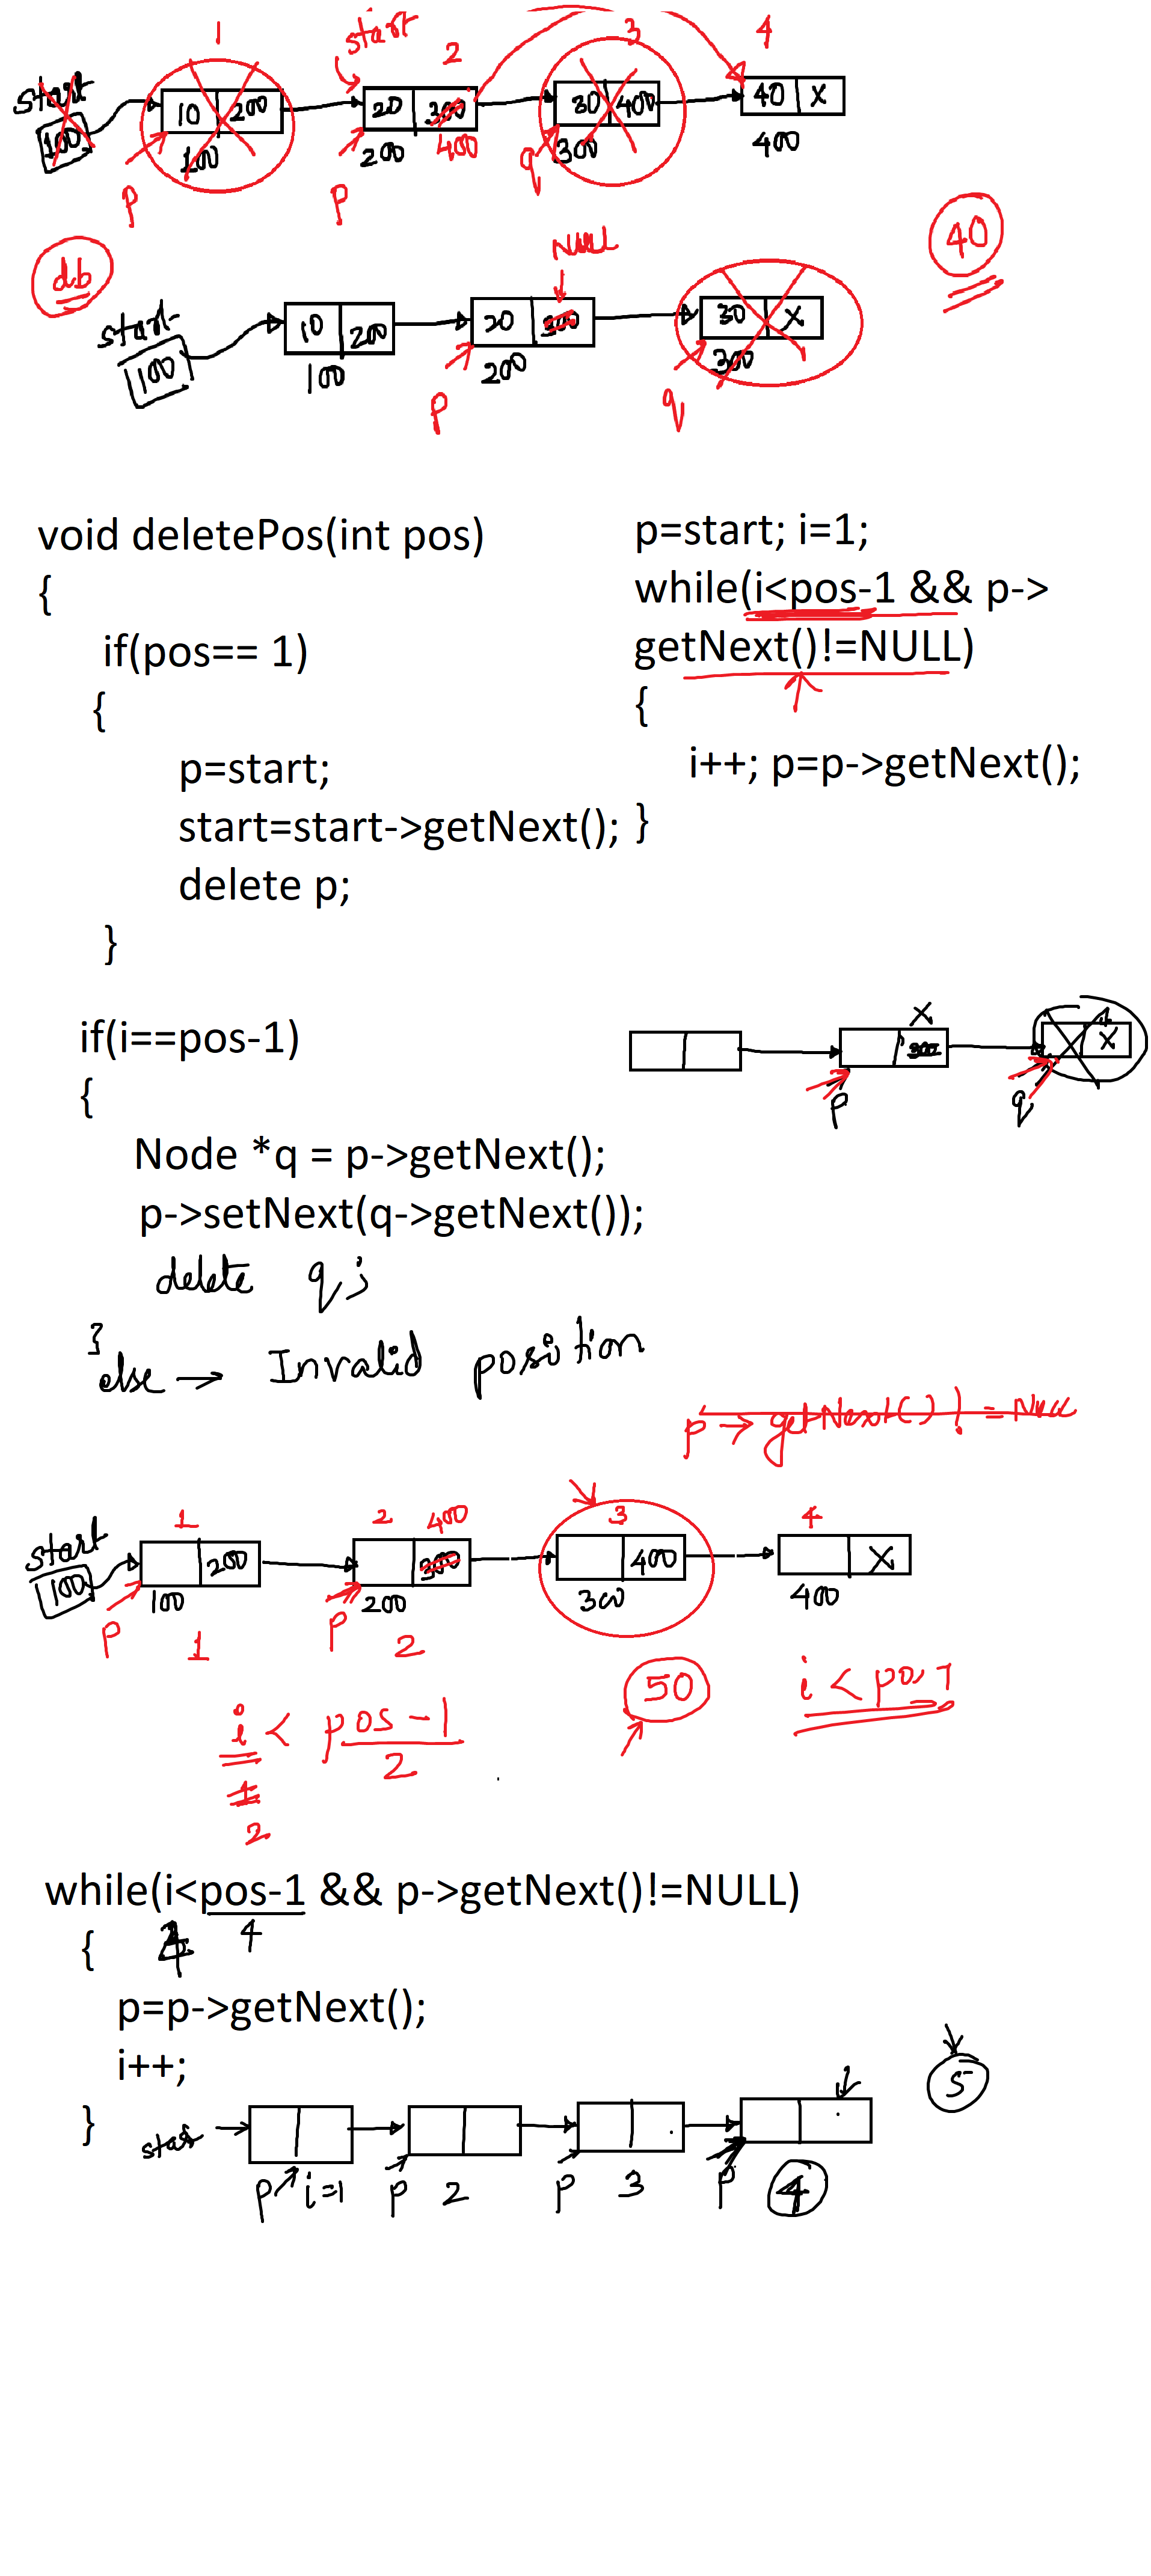 1
start
2
3
4
start
10 200
20 300
30 400
40 X
100
100
200
400
300
400
p
p
q
NULL
40
db
start
10 200
20 300
30 X
100
100
200
300
p
q
void deletePos(int pos)
{
if(pos== 1)
{
p=start;
start=start->getNext();
delete p;
}
p=start; i=1;
while(i<pos-1 && p->
getNext()!=NULL)
{
i++; p=p->getNext();
}
if(i==pos-1)
{
Node *q = p->getNext();
p->setNext(q->getNext());
delete q;
}
else → Invalid position
X
300
X
p
q
p → getNext() != NULL
start
1
2
400
3
4
100
200
300
400
X
100
200
300
400
p
1
p
2
50
i < pos-1
i < pos-1
1
2
2
while(i<pos-1 && p->getNext()!=NULL)
{ 4 4
p=p->getNext();
i++;
}
5
star
p i=1
p 2
p 3
p 4